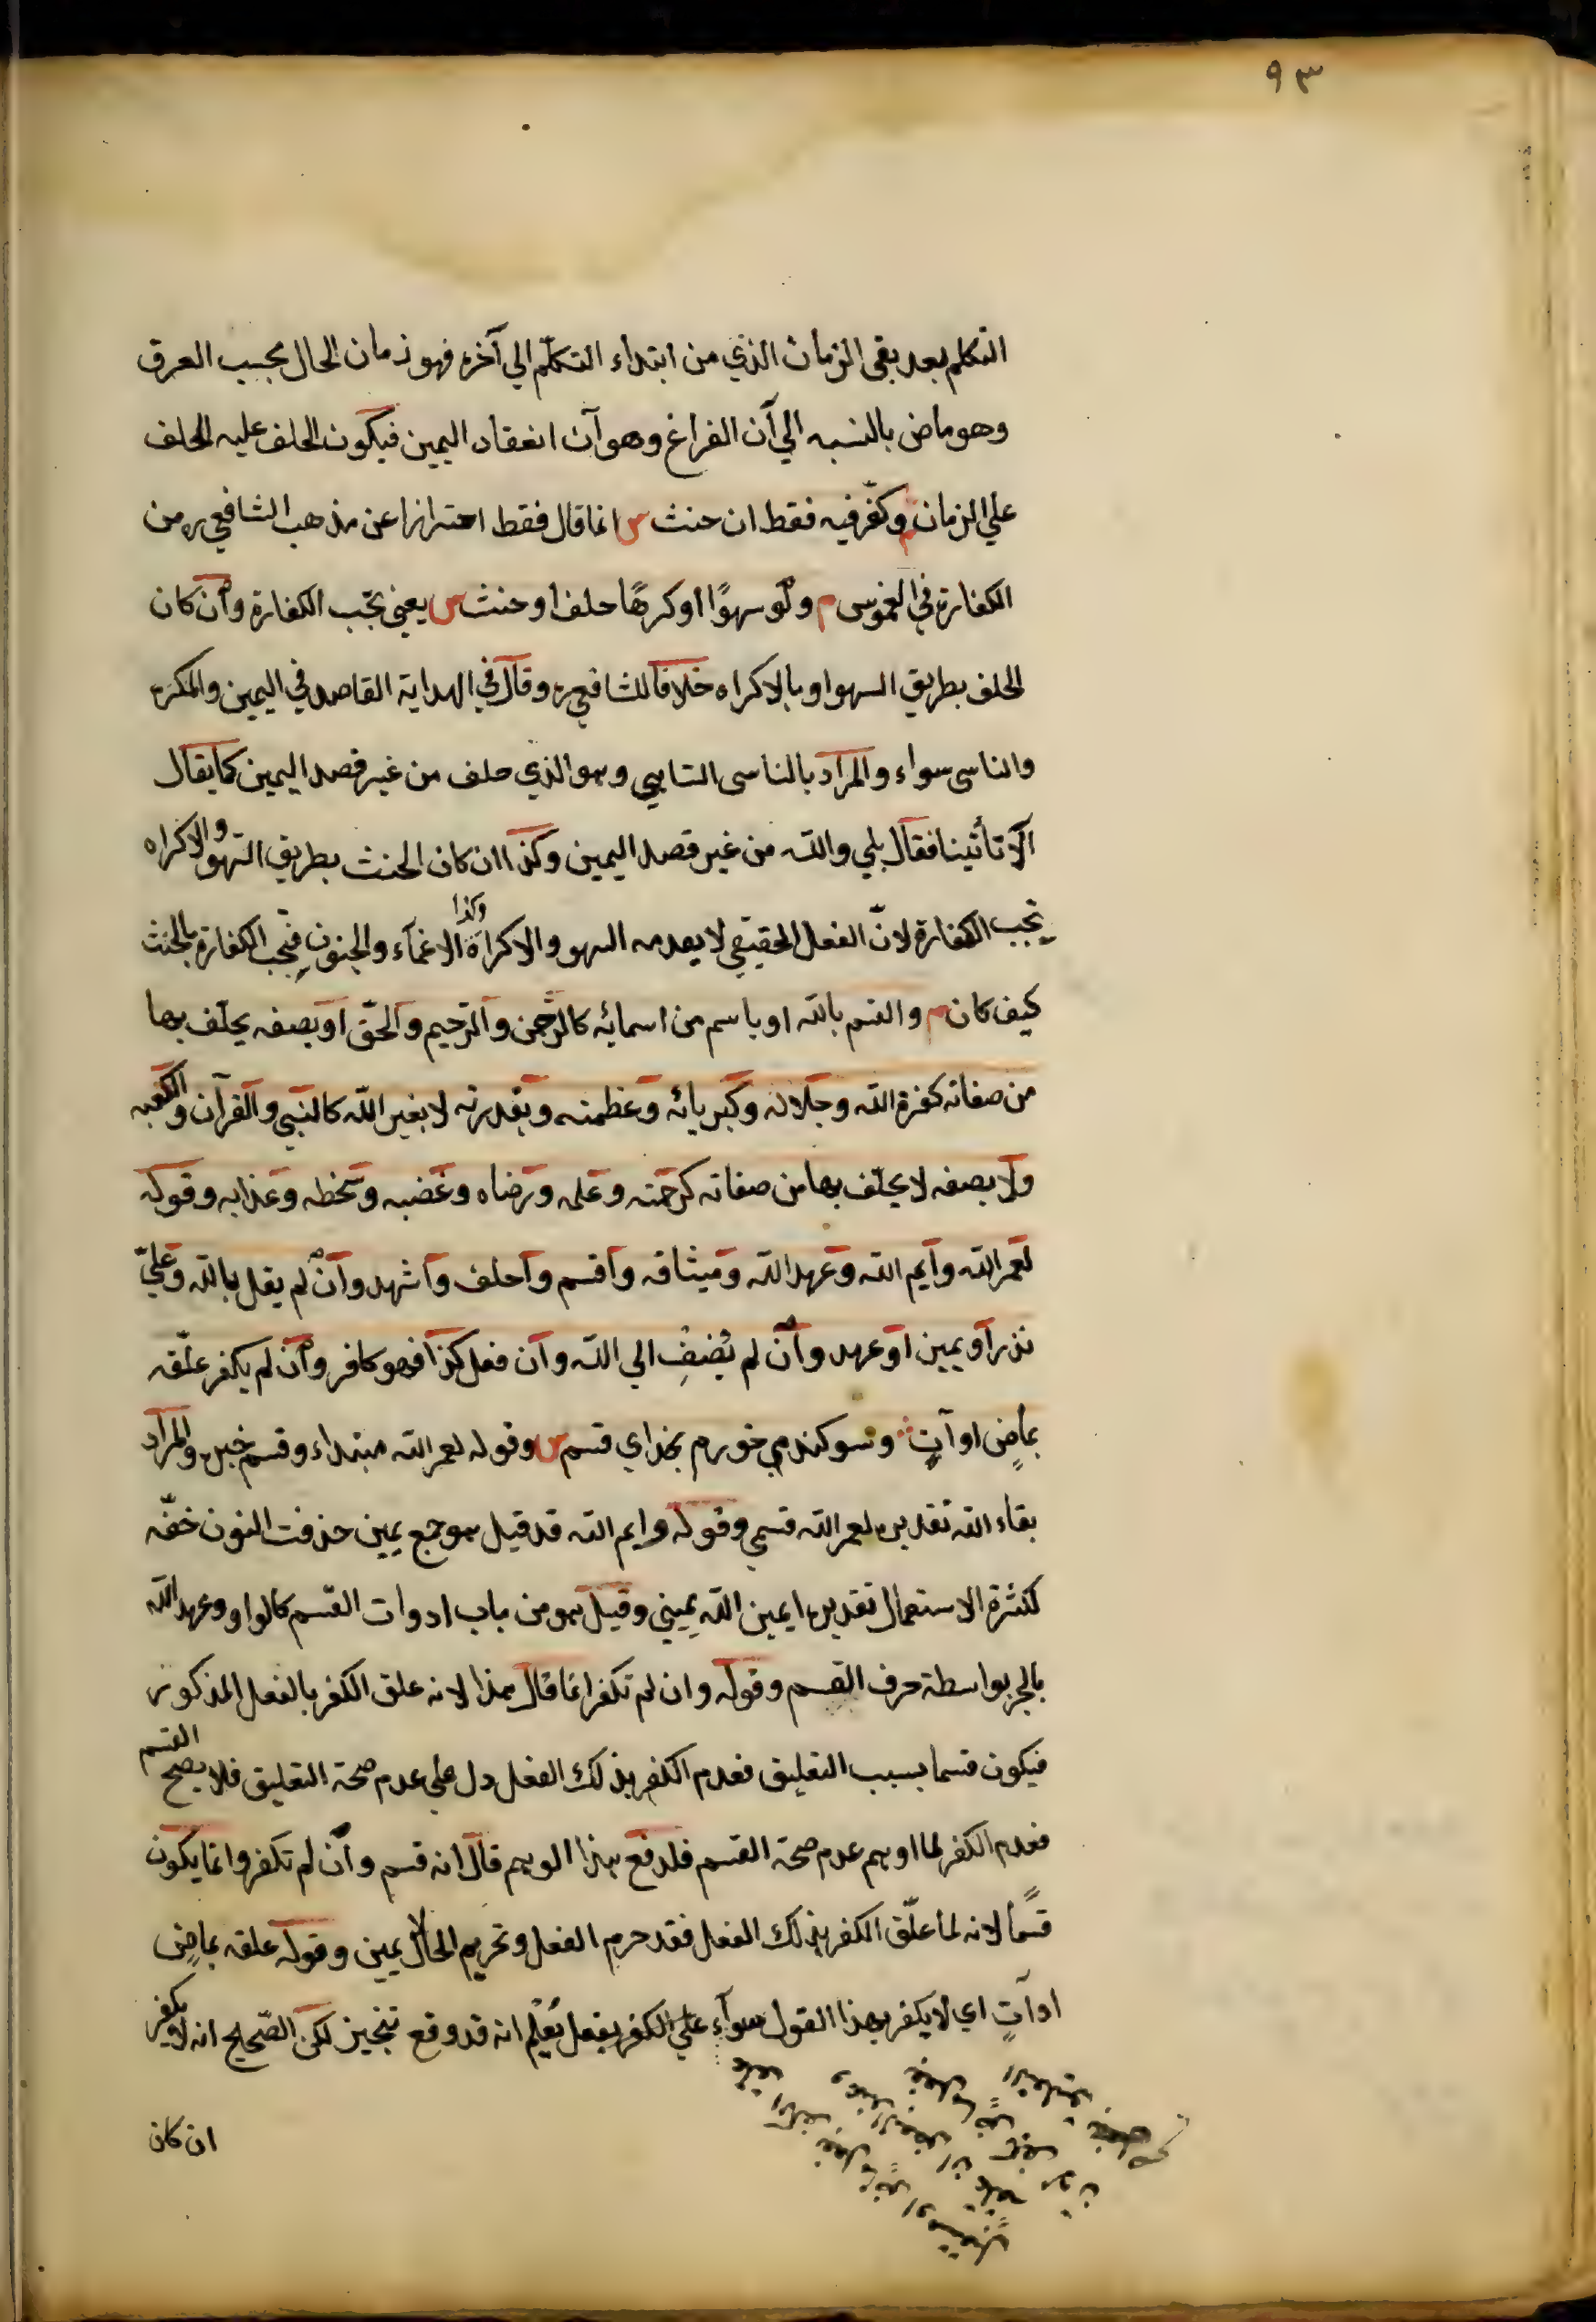 ٩٣
التكلم بعد بقى الزمان الذي من ابتداء التكلّم الي آخره فهو زمان الحال بحسب العرف
وهو ماض بالنسبه الي آن الفراغ وهو آن انعقاد اليمين فيكون الحلف عليه الحلف
علي الزمان م وكفّر فيه فقط ان حنث س انما قال فقط احترازا عن مذهب الشافعي ره من
الكفارة في الغموس م ولو سهوًا او كرهًا حلف او حنث س يعني تجب الكفارة وان كان
الحلف بطريق السهو او بالاكراه خلافا للشافعي ره وقال في الهداية القاصد في اليمين والمكره
والناسى سواء والمراد بالناسى الساهي وهو الذي حلف من غير قصد اليمين كما يقال
الا تأتينا فقال بلي والله من غير قصد اليمين وكذا ان كان الحنث بطريق السهو والاكراه
تجب الكفارة لانّ الفعل الحقيقي لا يعدمه السهو والاكراه وكذا الاغماء والجنون فتجب الكفارة بالحنث
كيف كان م والقسم بالله او باسم من اسمائه كالرّحمن والرّحيم والحقّ او بصفه يحلف بها
من صفاته كعزة الله وجلاله وكبريائه وعظمته وبقدرته لا بغير الله كالنبي والقرآن والكعبه
ولا بصفه لا يحلف بها من صفاته كرحمته وعلمه ورضاه وغضبه وسخطه وعذابه وقوله
لعمر الله وايم الله وعهد الله وميثاقه واقسم واحلف واشهد وان لم يقل بالله وعليّ
نذر او يمين او عهد وان لم يُضِفْ الي الله وان فعل كذا فهو كافر وان لم يكفر علّقه
بماضٍ او آتٍ وسوكند مي خورم بخداي قسم س وقوله لعمر الله مبتداء وقسم خبره والمراد
بقاء الله تقديره لعمر الله قسمي وقوله وايم الله قد قيل هو جمع يمين حذفت النون خفّه
لكثرة الاستعمال تقديره ايمين الله يميني وقيل هو من باب ادوات القسم كالواو وعهد الله
بالجر بواسطة حرف القسم وقوله وان لم تكفر انما قال هذا لانه علق الكفر بالفعل المذكور
فيكون قسما بسبب التعليق فعدم الكفر بذلك الفعل دل علي عدم صحة التعليق فلا يصح القسم
فعدم الكفر لما اوهم عدم صحة القسم فلدفع هذا الوهم قال انه قسم وان لم تكفر وانما يكون
قسمًا لانه لما علّق الكفر بذلك الفعل فقد حرم الفعل وتحريم الحلال يمين وقوله علقه بماضٍ
او آتٍ اي لا يكفر بهذا القول سواء علي الكفر بفعل يُعْلم انه قد وقع تنجيز لكن الصّحيح انه لا يكفر
ان كان